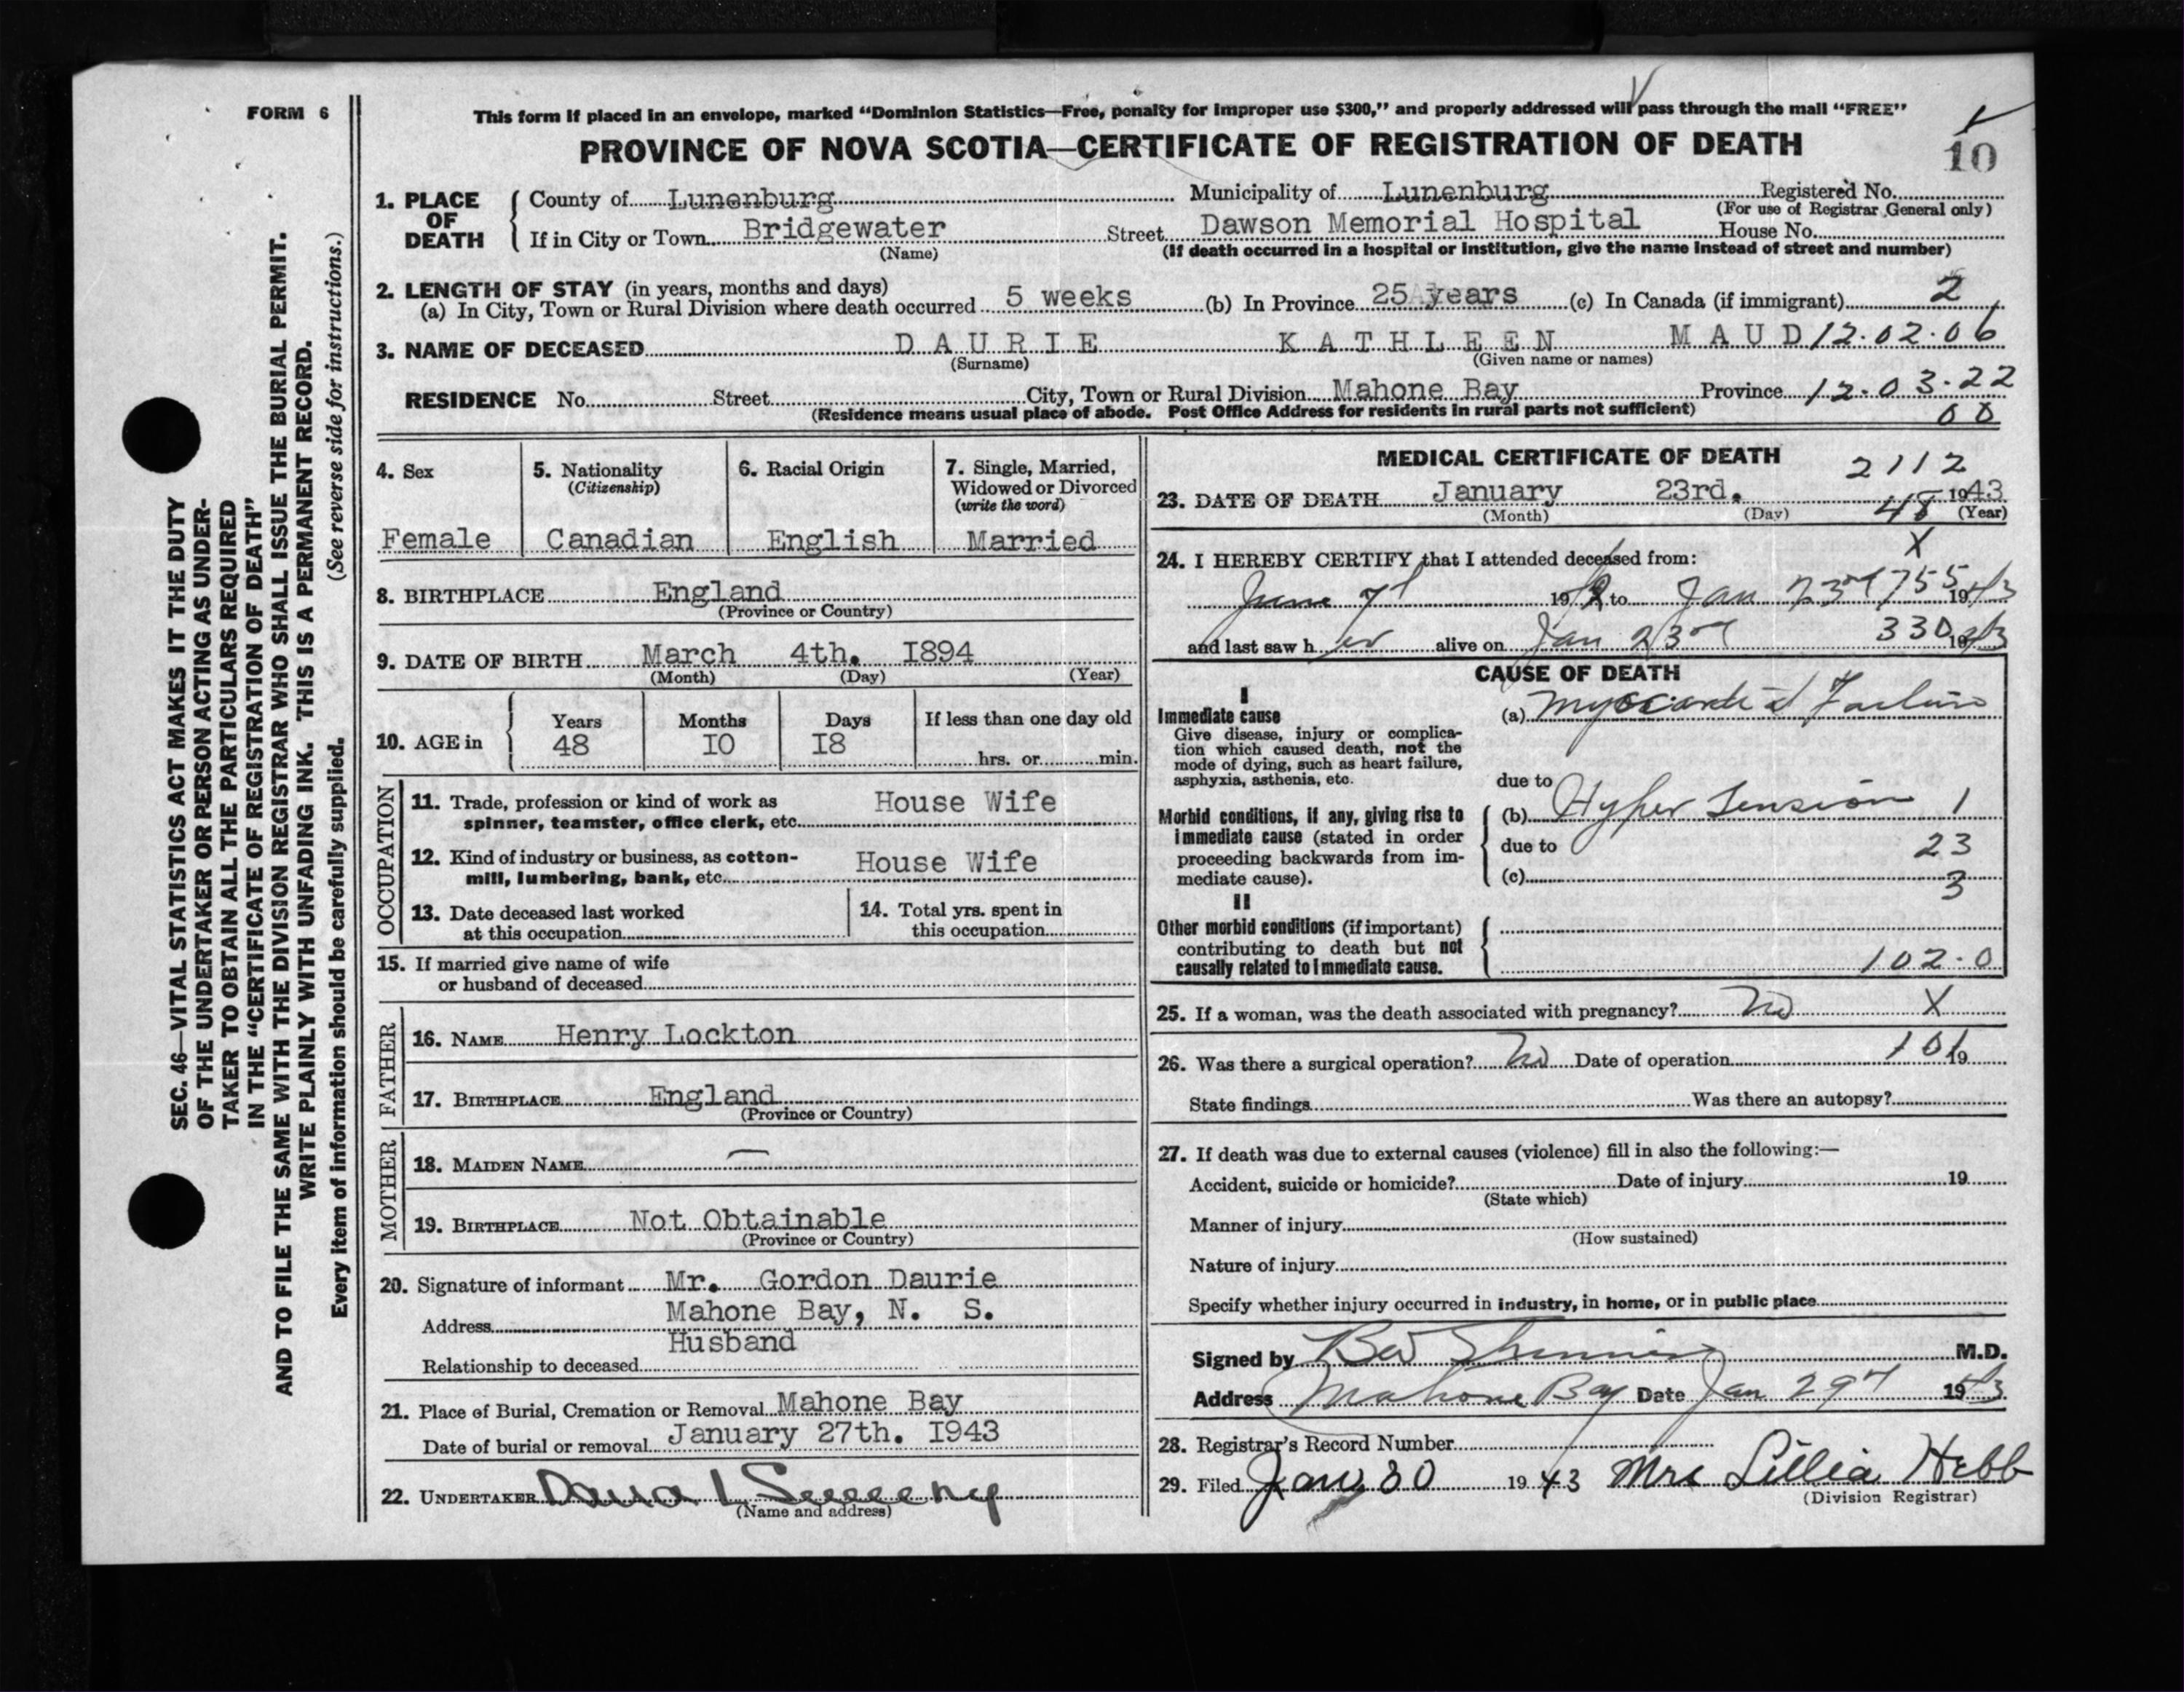 FORM 6
This form if placed in an envelope, marked “Dominion Statistics—Free, penalty for improper use $300,” and properly addressed will pass through the mail “FREE”
PROVINCE OF NOVA SCOTIA—CERTIFICATE OF REGISTRATION OF DEATH
10
1. PLACE OF DEATH
County of Lunenburg Municipality of Lunenburg Registered No.
(For use of Registrar General only)
If in City or Town Bridgewater Street Dawson Memorial Hospital House No.
(Name) (If death occurred in a hospital or institution, give the name instead of street and number)
2. LENGTH OF STAY (in years, months and days)
(a) In City, Town or Rural Division where death occurred 5 weeks (b) In Province 25 years (c) In Canada (if immigrant) 2
3. NAME OF DECEASED DAURIE KATHLEEN MAUD 12.02.06
(Surname) (Given name or names)
RESIDENCE No. Street City, Town or Rural Division Mahone Bay Province 12.03.22
(Residence means usual place of abode. Post Office Address for residents in rural parts not sufficient) 00
4. Sex
Female
5. Nationality
(Citizenship)
Canadian
6. Racial Origin
English
7. Single, Married,
Widowed or Divorced
(write the word)
Married
8. BIRTHPLACE England
(Province or Country)
9. DATE OF BIRTH March 4th. I894
(Month) (Day) (Year)
10. AGE in
Years Months Days If less than one day old
48 IO I8 hrs. or min.
OCCUPATION
11. Trade, profession or kind of work as House Wife
spinner, teamster, office clerk, etc.
12. Kind of industry or business, as cotton- House Wife
mill, lumbering, bank, etc.
13. Date deceased last worked
at this occupation
14. Total yrs. spent in
this occupation
15. If married give name of wife
or husband of deceased
FATHER
16. NAME Henry Lockton
17. BIRTHPLACE England
(Province or Country)
MOTHER
18. MAIDEN NAME —
19. BIRTHPLACE Not Obtainable
(Province or Country)
20. Signature of informant Mr. Gordon Daurie
Address Mahone Bay, N. S.
Relationship to deceased Husband
21. Place of Burial, Cremation or Removal Mahone Bay
Date of burial or removal January 27th. I943
22. UNDERTAKER Sweeny
(Name and address)
MEDICAL CERTIFICATE OF DEATH
2112
23. DATE OF DEATH January 23rd. 1943
(Month) (Day) (Year)
48
X
24. I HEREBY CERTIFY that I attended deceased from:
June 7 1942 to Jan 23rd 1943
755
and last saw her alive on Jan 23rd 1943
330
CAUSE OF DEATH
I
Immediate cause
Give disease, injury or complica-
tion which caused death, not the
mode of dying, such as heart failure,
asphyxia, asthenia, etc.
(a) Myocardial Failure
due to
Morbid conditions, if any, giving rise to
immediate cause (stated in order
proceeding backwards from im-
mediate cause).
(b) Hyper Tension 1
due to 23
(c) 3
II
Other morbid conditions (if important)
contributing to death but not
causally related to immediate cause.
102.0
25. If a woman, was the death associated with pregnancy? No X
26. Was there a surgical operation? No Date of operation 19
101
State findings Was there an autopsy?
27. If death was due to external causes (violence) fill in also the following:—
Accident, suicide or homicide? Date of injury 19
(State which)
Manner of injury
(How sustained)
Nature of injury
Specify whether injury occurred in industry, in home, or in public place
Signed by M.D.
Address Mahone Bay Date Jan 29 1943
28. Registrar's Record Number
29. Filed Jan 30 1943 Mrs Lillia Hebb
(Division Registrar)
SEC. 46—VITAL STATISTICS ACT MAKES IT THE DUTY
OF THE UNDERTAKER OR PERSON ACTING AS UNDER-
TAKER TO OBTAIN ALL THE PARTICULARS REQUIRED
IN THE “CERTIFICATE OF REGISTRATION OF DEATH”
AND TO FILE THE SAME WITH THE DIVISION REGISTRAR WHO SHALL ISSUE THE BURIAL PERMIT.
WRITE PLAINLY WITH UNFADING INK. THIS IS A PERMANENT RECORD.
Every item of information should be carefully supplied. (See reverse side for instructions.)